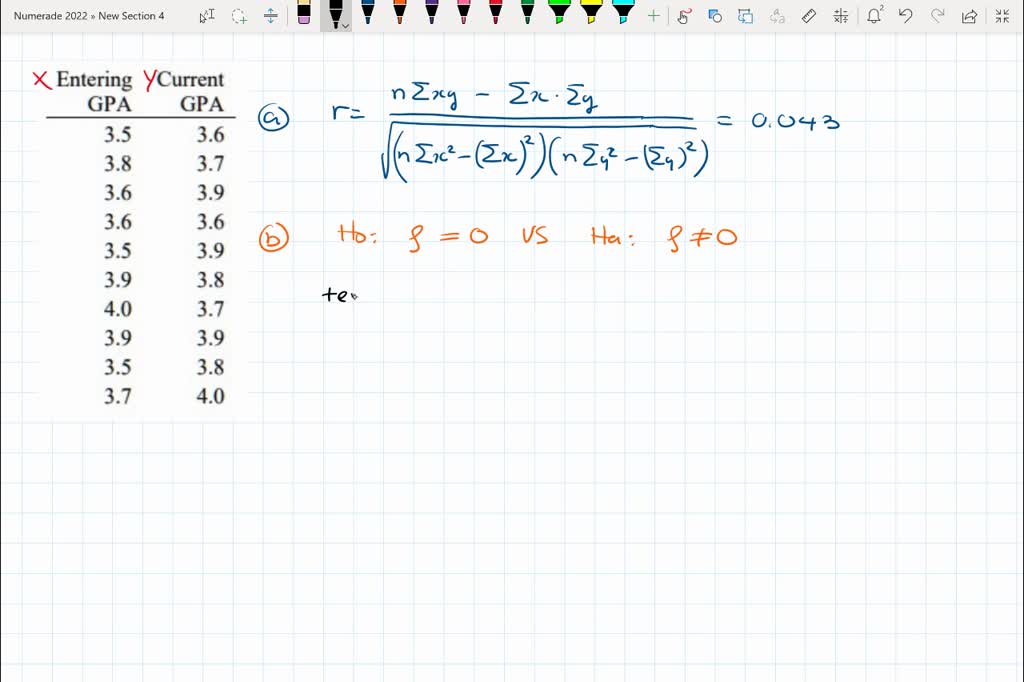 Numerade 2022 » New Section 4
X Entering Y Current
GPA GPA
3.5 3.6
3.8 3.7
3.6 3.9
3.6 3.6
3.5 3.9
3.9 3.8
4.0 3.7
3.9 3.9
3.5 3.8
3.7 4.0
ⓐ r = (nΣxy - Σx · Σy) / √((nΣx² - (Σx)²)(nΣy² - (Σy)²)) = 0.043
ⓑ Ho: ρ = 0 VS Ha: ρ ≠ 0
te